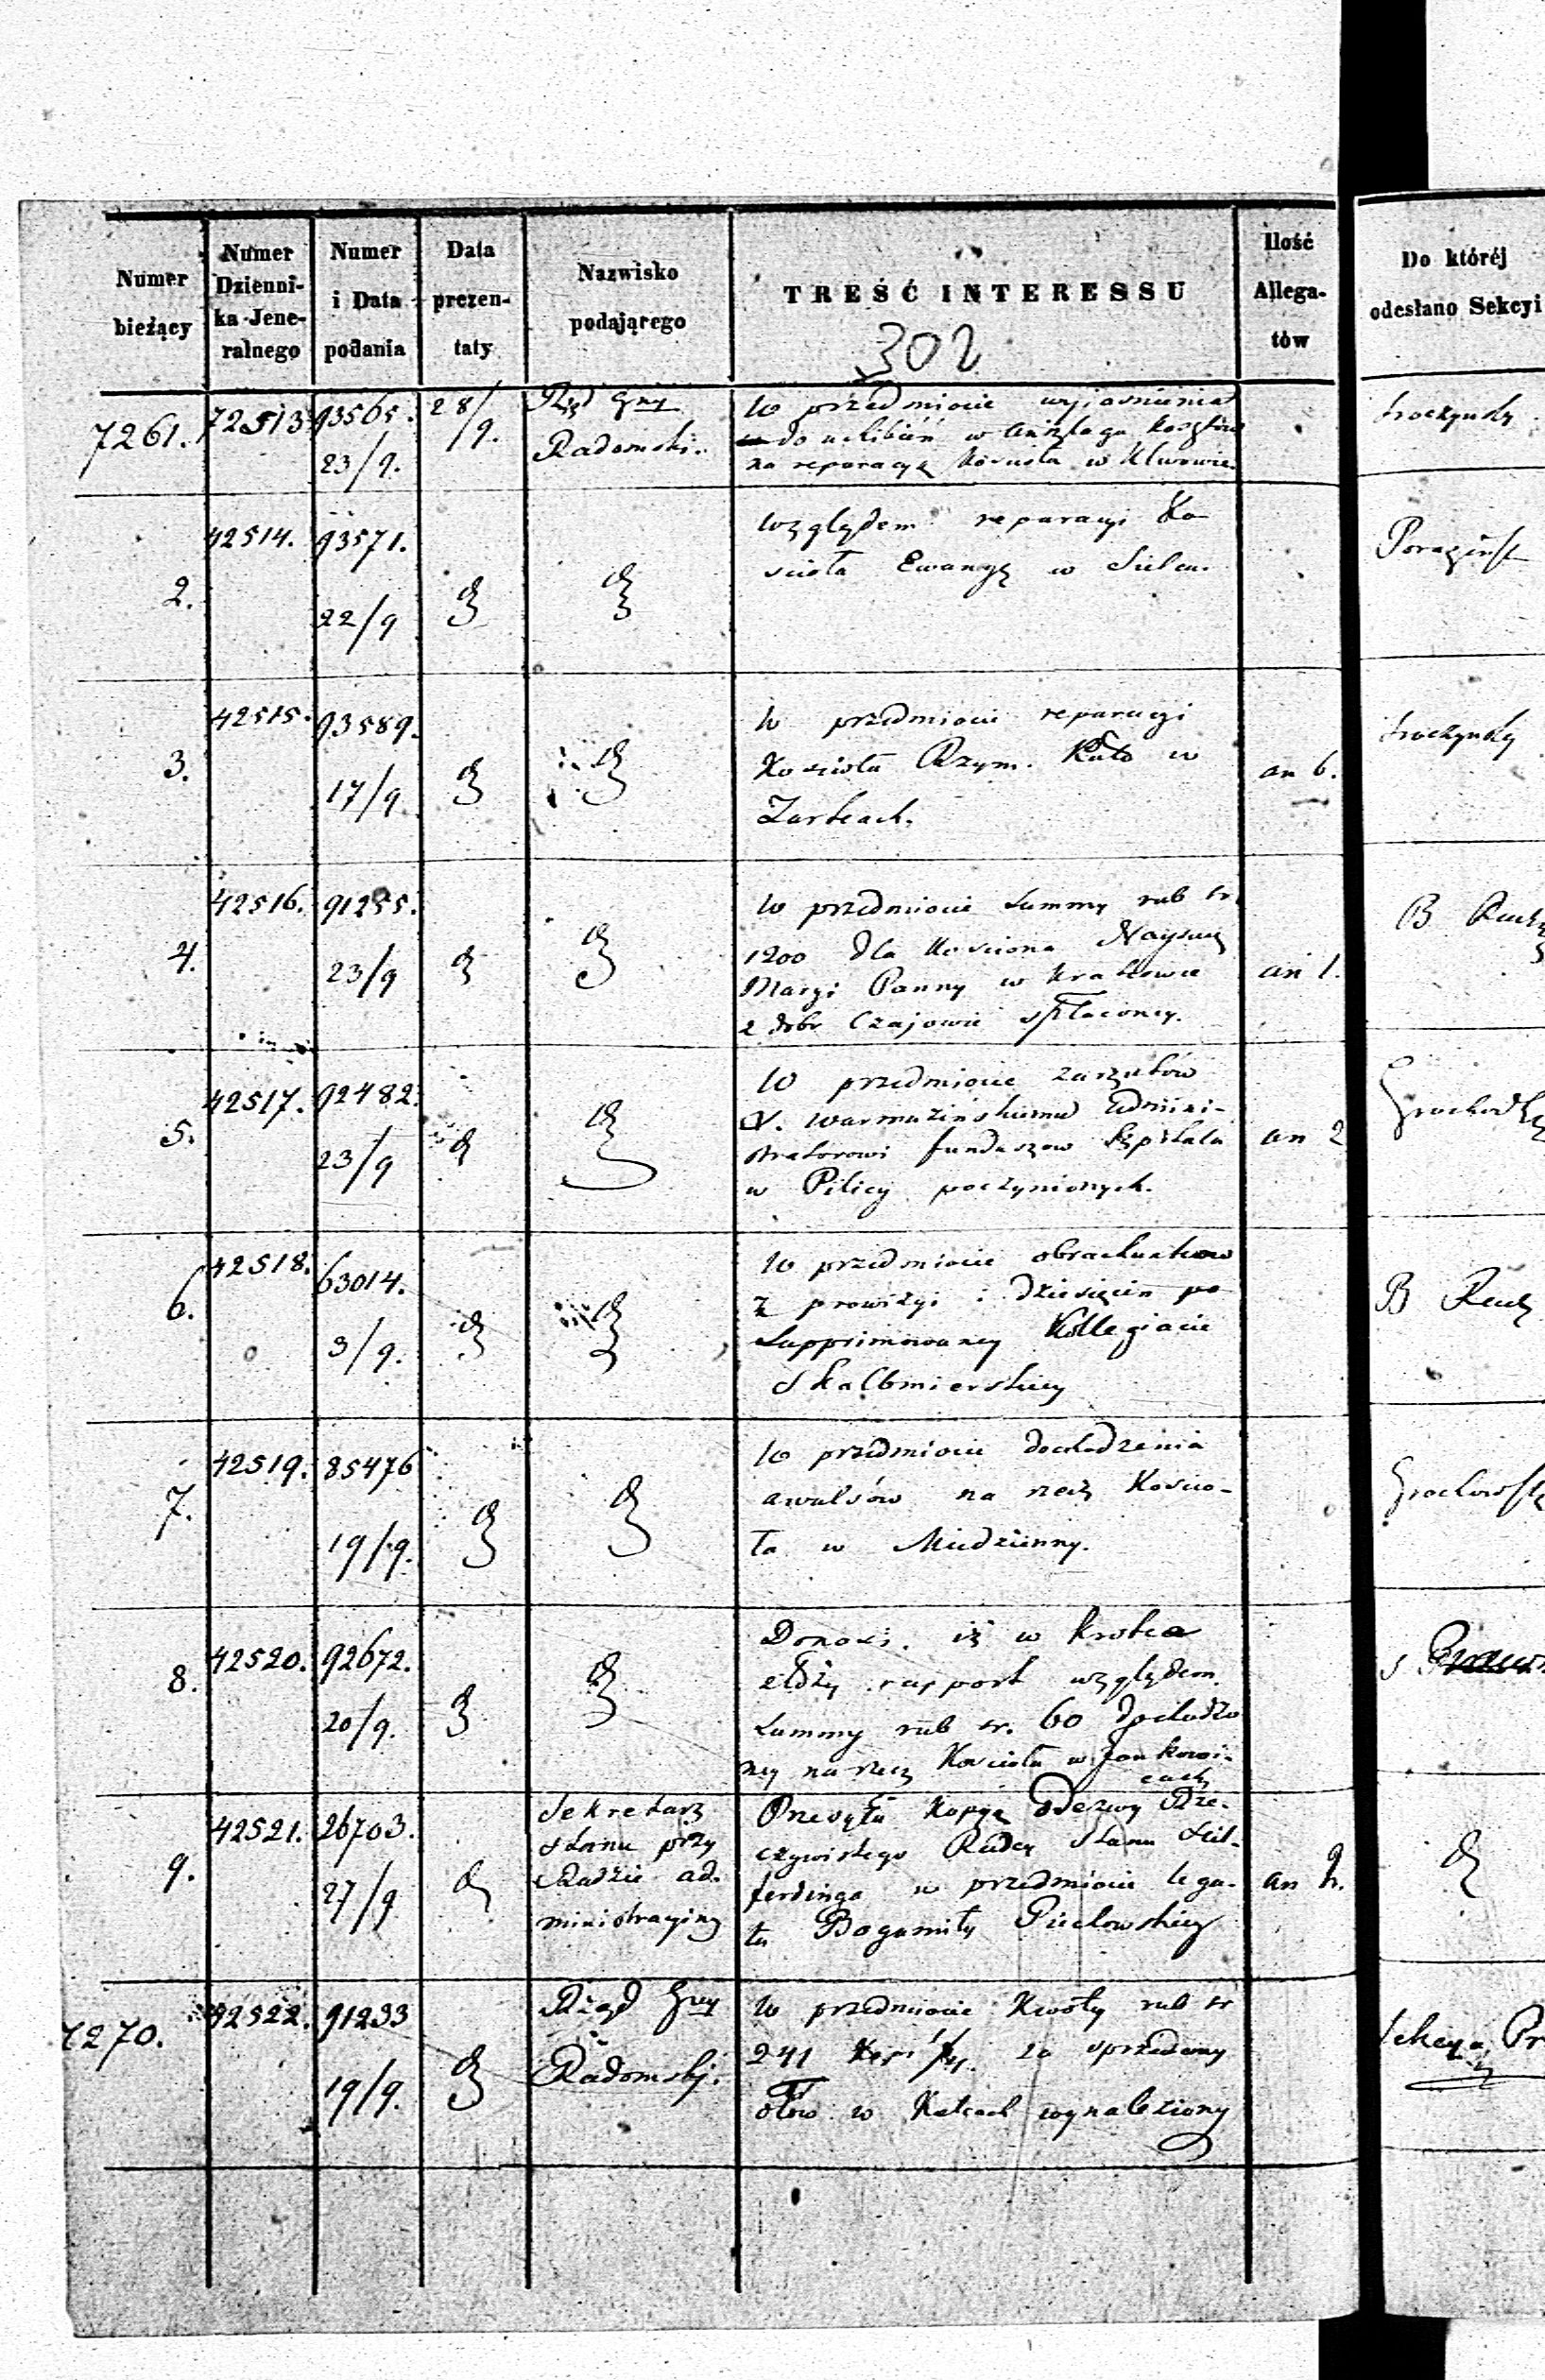 Numer bieżący
Numer Dzienni-
ka Jene-
ralnego
Numer i Data podania
Data prezen-
taty
Nazwisko podającego
TREŚĆ INTERESSU
302
Ilość Allega-
tów
Do któréj odesłano Sekcyi
7261.
72513
93565.
23/9.
28/9.
Rząd Gny
Radomski.
W przedmiocie wyjaśnienia
do uchibień w anszlagu kosztów
na reparacyę Kościoła w Klwowie
2.
42514.
93571.
22/9
Względem reparacyi Ko
ścioła Ewang w Sielcu.
3.
42515.
93589.
17/9
W przedmiocie reparacyi
Kościoła Rzym. Kato w
Żarkach.
an 6.
4.
42516.
91255.
23/9
W przedmiocie Summy rub sr.
1200 dla Kościona Nayśw
Maryi Panny w Krakowie
z dobr Czajowic spłaconey.
an 1.
5.
42517.
92482.
23/9
W przedmiocie zarzutów
X. Warmuzińskiemu Admini-
stratorowi funduszow Szpitala
w Pilicy poczynionych.
an 2
6.
42518.
63014.
3/9.
W przedmiocie obrachunkow
z prowizyi i dziesięcin po
Supprimowaney Kollegiacie
Skalbmierskiey
B
7.
42519.
85476
19/9.
W przedmiocie dochodzenia
awulsów na rzecz Kościo-
ła w Miedzienny.
8.
42520.
92672.
20/9.
Donosi, iż w krotce
złoży rapport względem
Summy rub sr. 60
ney na rzecz Kościoła w Jankowi-
cach
9.
42521.
26703.
27/9
Sekretarz
Stanu przy
Radzie ad-
ministracyjney
Przesyła Kopyę odezwy Rze-
czywistego Radcy Stanu Hil-
ferdinga w przedmiocie lega-
tu Bogumiły
an 2.
7270.
42522.
91233
19/9.
Rząd Gny
Radomski.
W przedmiocie Kwoty rub sr
241 za sprzedany
ołow w Kielcach wynaleziony
Sekcya Pr